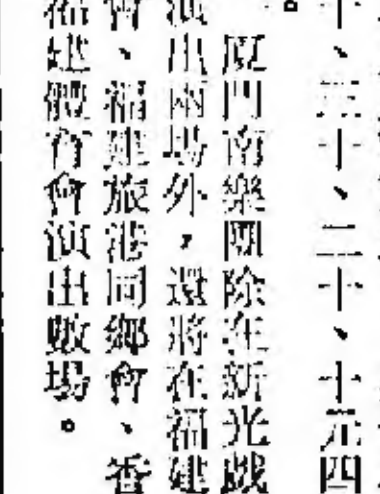 十、三十、二十、十元四
。
廈門南樂團除在新光戲
演出兩場外，還將在福建
會、福建旅港同鄉會、香
福建體育會演出數場。